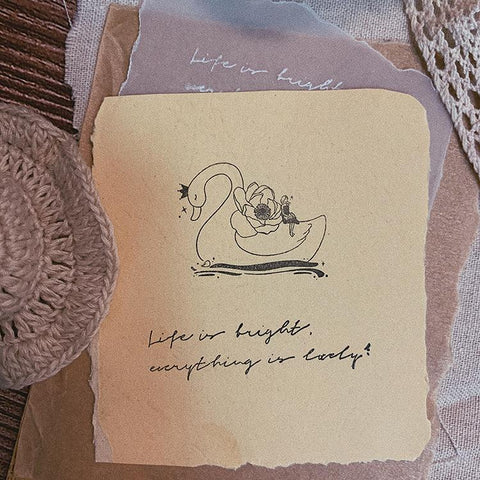 Life is bright
Life is bright,
everything is lovely!